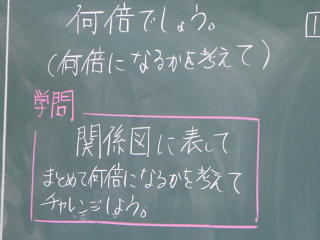 何倍でしょう。
(何倍になるかを考えて)
学問
関係図に表して
まとめて何倍になるかを考えて
チャレンジしよう。